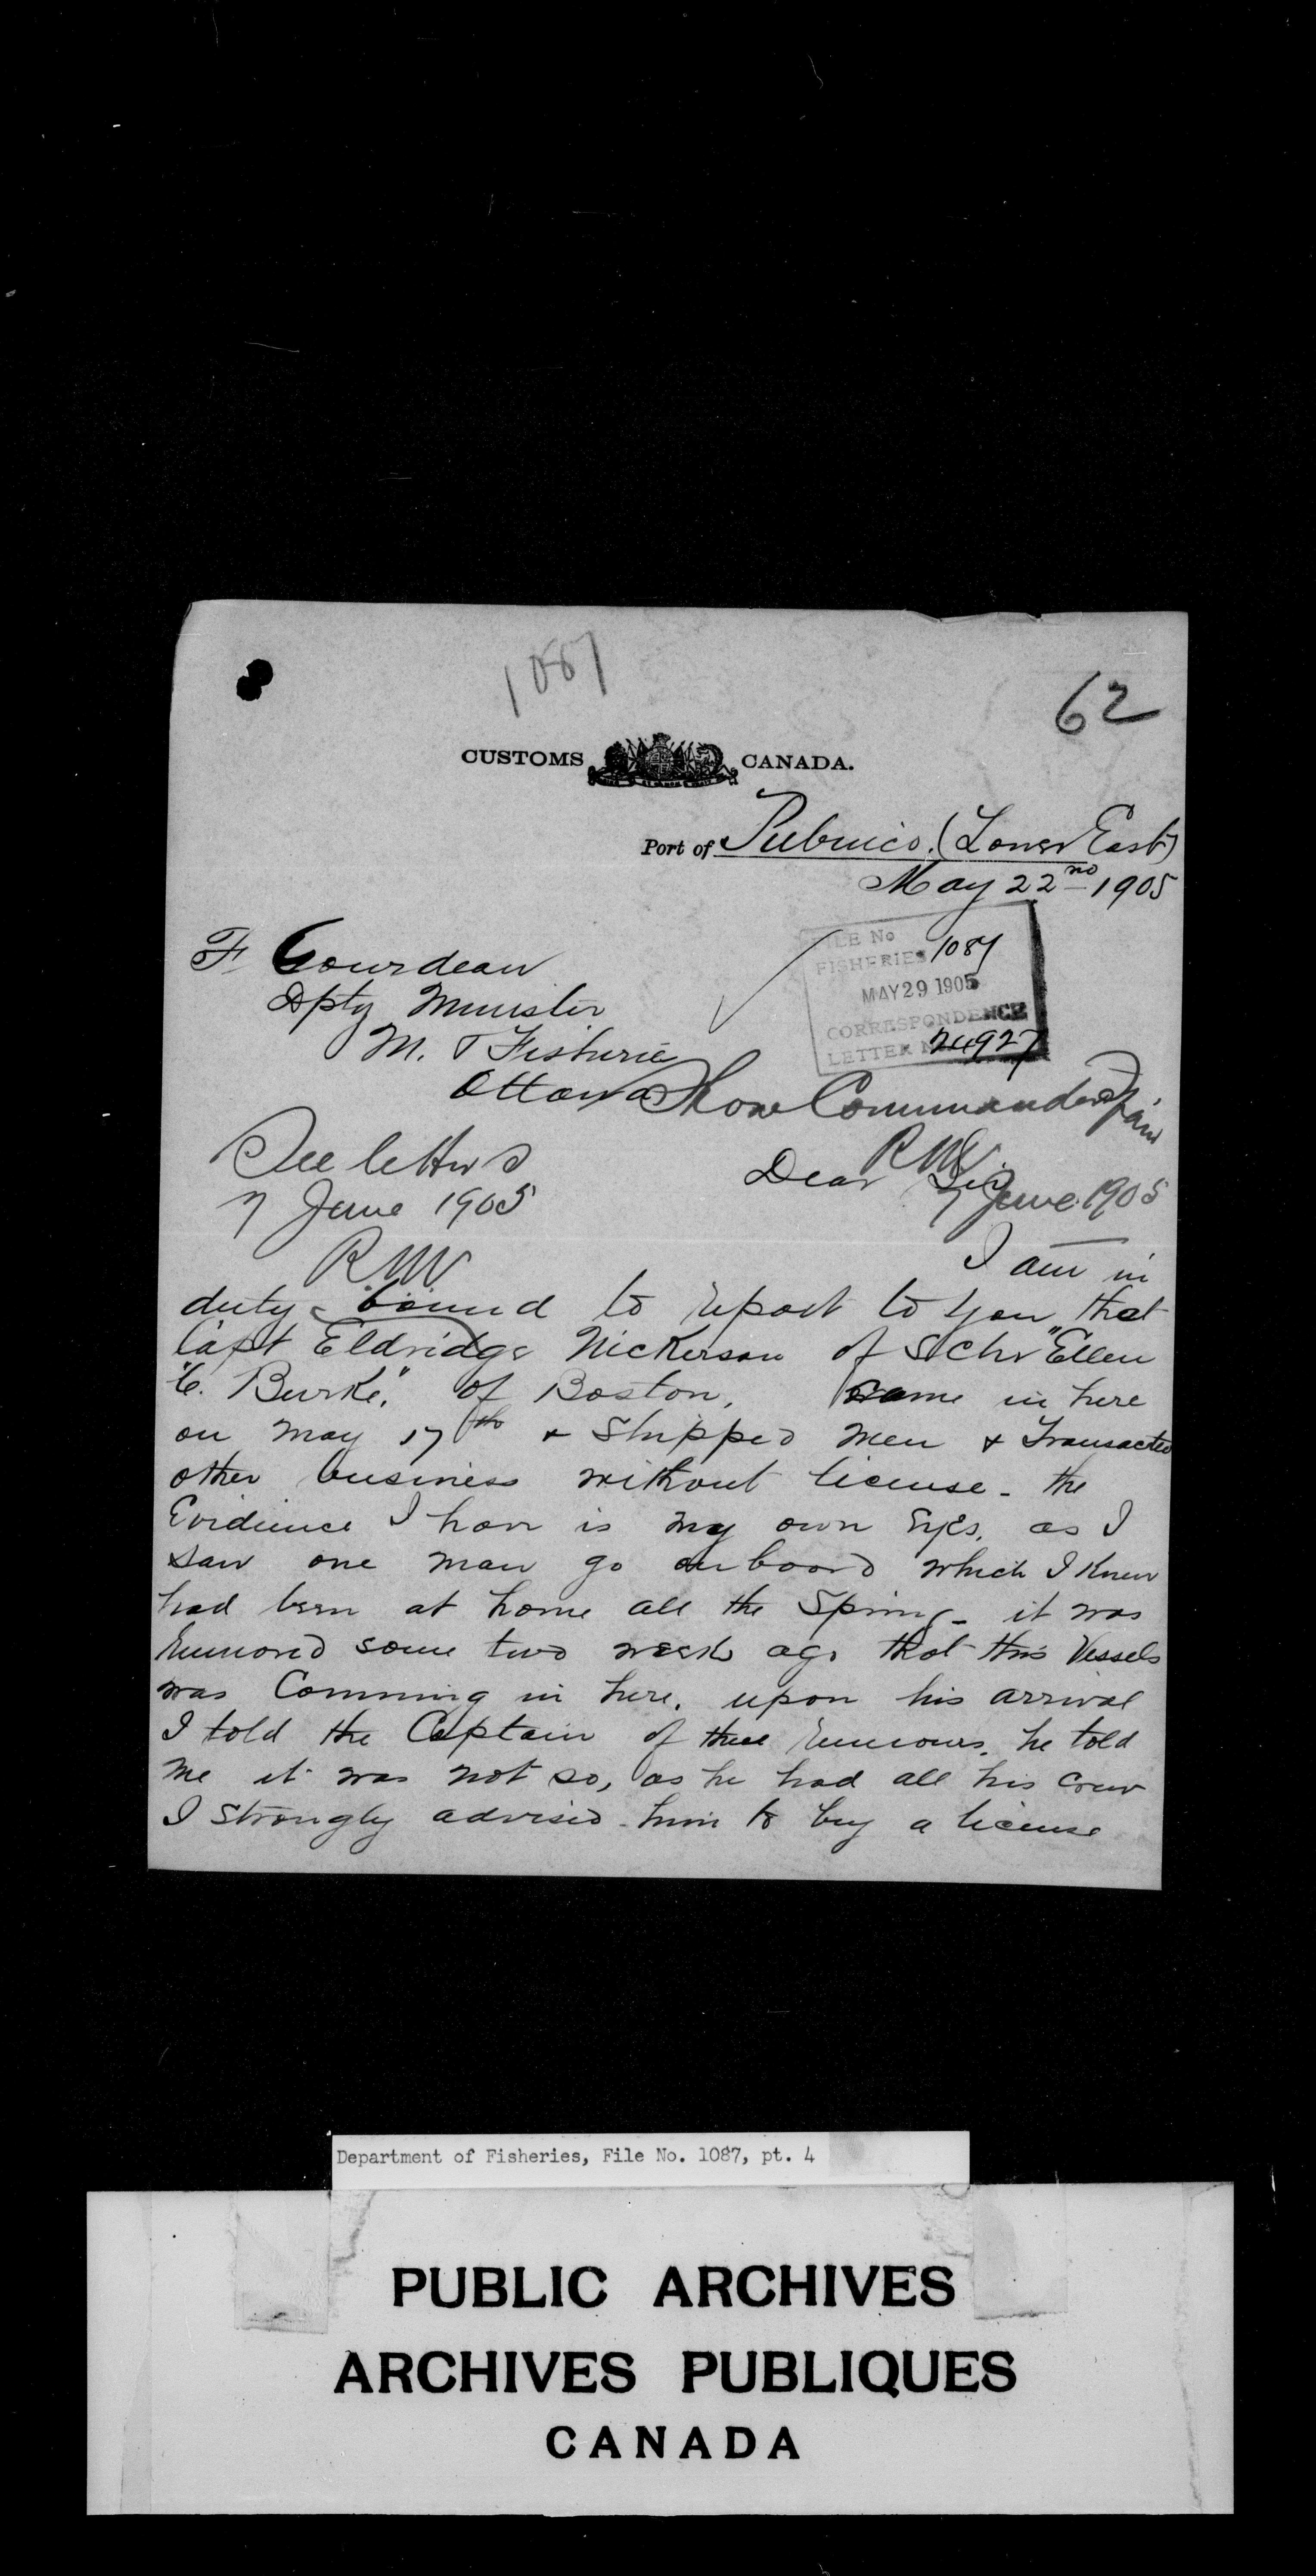 1087
62
CUSTOMS CANADA.
Port of Pubnico. (Lower East)
May 22nd 1905
F. Gourdeau
Dpty Minister
M. & Fisherie
Ottawa
FILE No
FISHERIES 1087
MAY 29 1905
CORRESPONDENCE
LETTER No 24927
Show Commander Spain
RMV
7 June 1905
See letters
7 June 1905
RMV
Dear Sir
I am in
duty bound to report to you that
Capt Eldridge Nickerson of Schr "Ellen
C. Burke," of Boston, came in here
on May 17th & Shipped men & Transacted
other business without license - the
Evidience I have is my own Eyes, as I
saw one man go onboard which I knew
had been at home all the Spring - it was
Rumored some two week ago that this Vessels
was Comming in here, upon his arrival
I told the Captain of these Rumours, he told
me it was not so, as he had all his crew
I strongly advised him to buy a license
Department of Fisheries, File No. 1087, pt. 4
PUBLIC ARCHIVES
ARCHIVES PUBLIQUES
CANADA